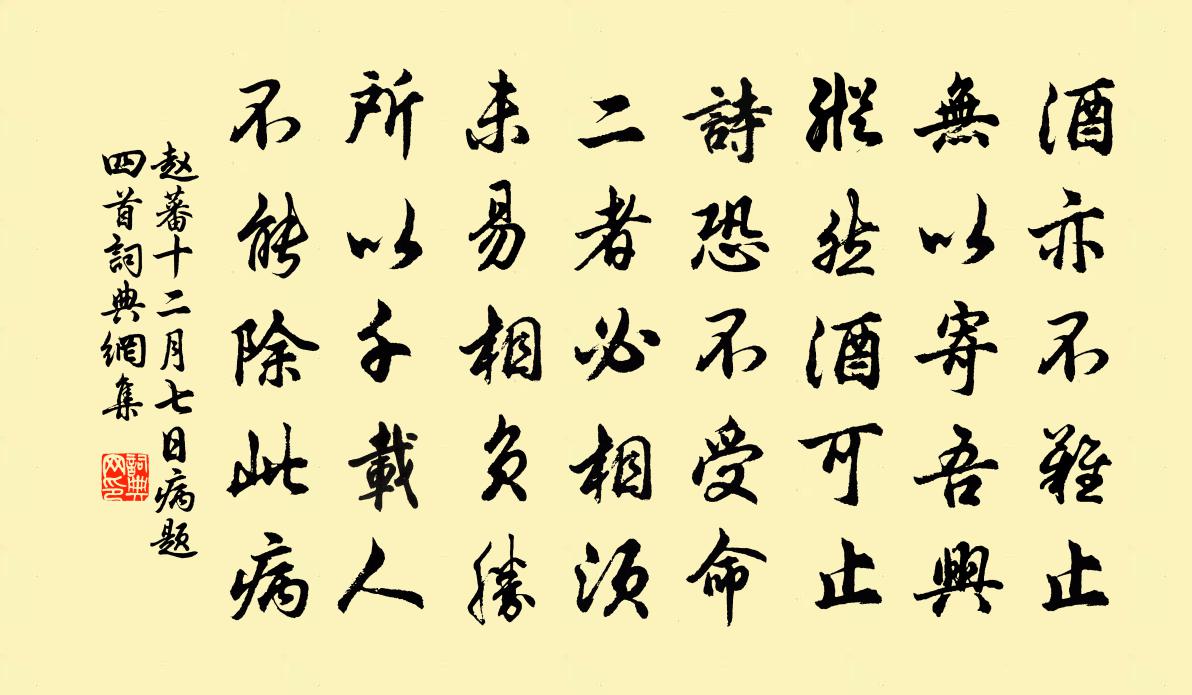 酒亦不難止
無以寄吾興
縱然酒可止
詩恐不受命
二者必相須
未易相負勝
所以千載人
不能除此病
赵蕃十二月七日病题
四首詞典網集
詞典网印